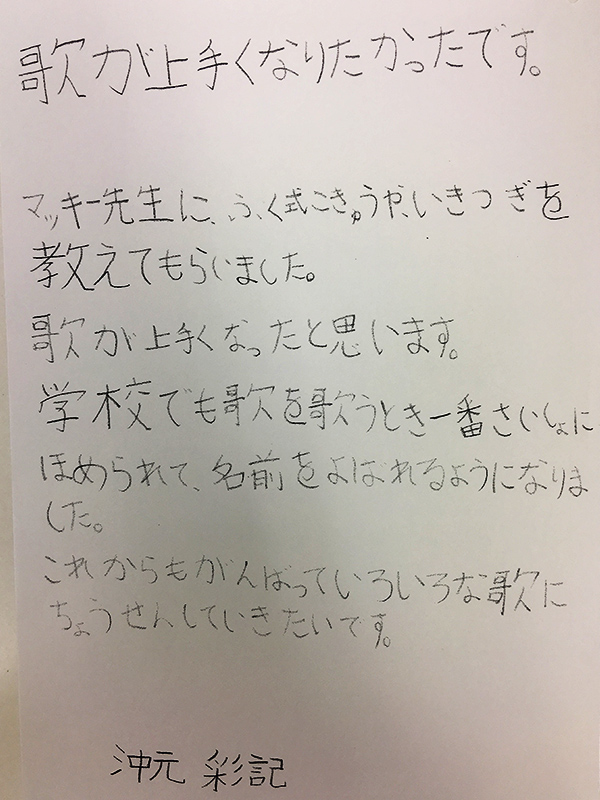 歌が上手くなりたかったです。
マッキー先生に、ふく式こきゅうや、いきつぎを
教えてもらいました。
歌が上手くなったと思います。
学校でも歌を歌うとき一番さいしょに
ほめられて、名前をよばれるようになりま
した。
これからもがんばっていろいろな歌に
ちょうせんしていきたいです。
沖元 彩記